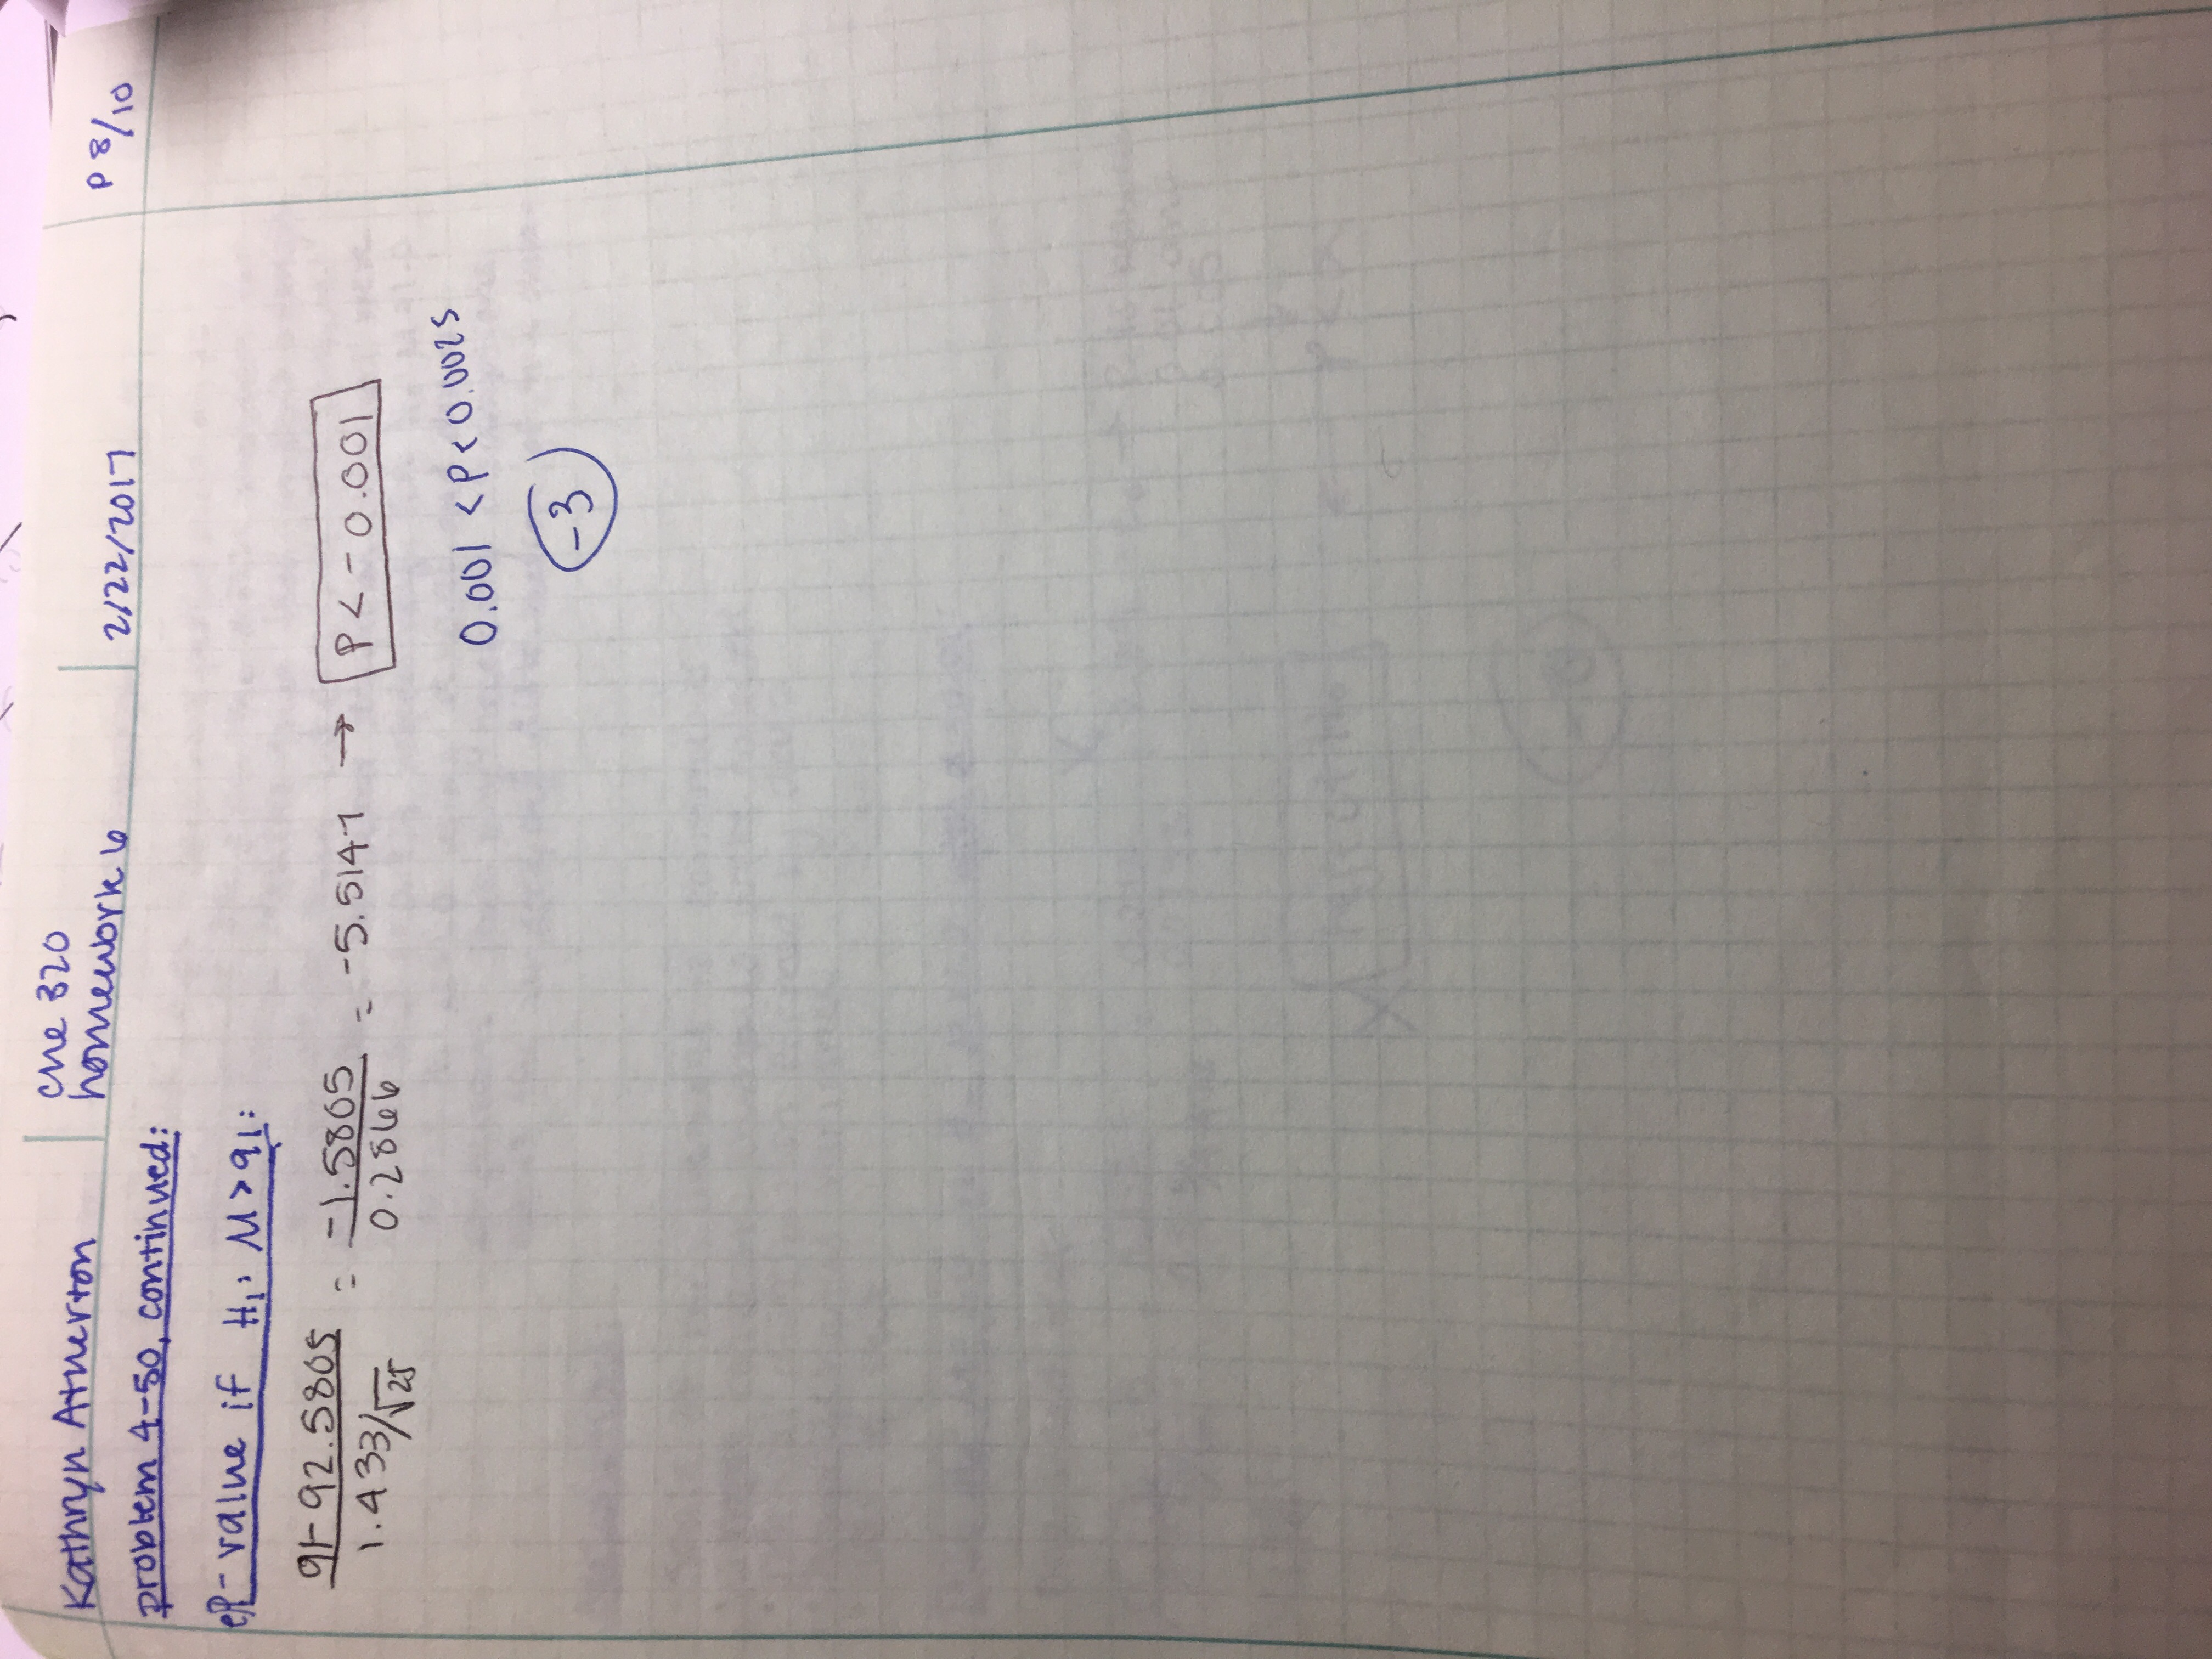 Kathryn Atherton
che 320
homework 6
2/22/2017
P 8/10
problem 4-50, continued:
P-value if H₁: M > 91:
91-92.5805 / 1.433/√25 = -1.5805 / 0.2866 = -5.5147 → P < -0.001
0.001 < P < 0.0025
-3